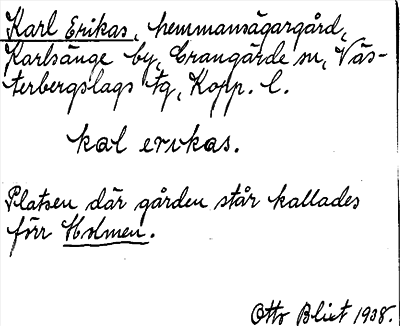 Karl Erikas, hemmansägargård,
Karlsänge by, Grangärde sn, Väs-
terbergslags tg, Kopp. l.
kal ervkas.
Platsen där gården står kallades
förr Holmen.
Otto Blixt 1938.